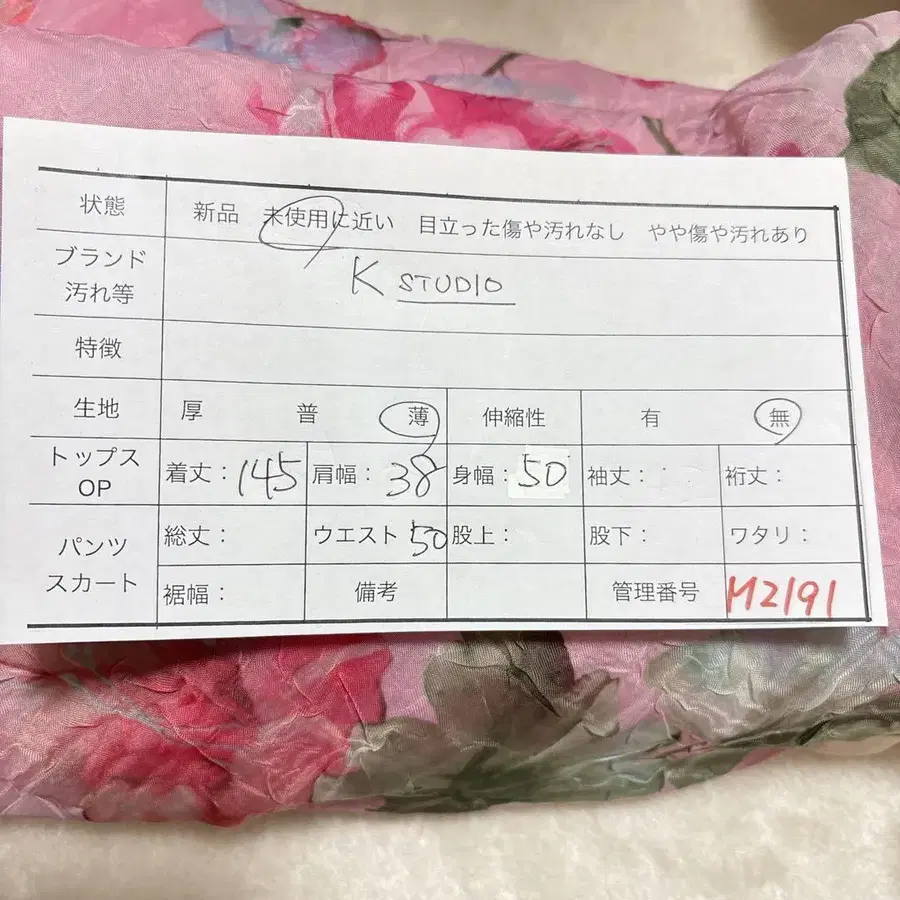 状態 新品 未使用に近い 目立った傷や汚れなし やや傷や汚れあり
ブランド
汚れ等 K STUDIO
特徴
生地 厚 普 薄 伸縮性 有 無
トップス
OP 着丈：145 肩幅：38 身幅：50 袖丈： 裄丈：
パンツ
スカート 総丈： ウエスト 50 股上： 股下： ワタリ：
裾幅： 備考 管理番号 M2191